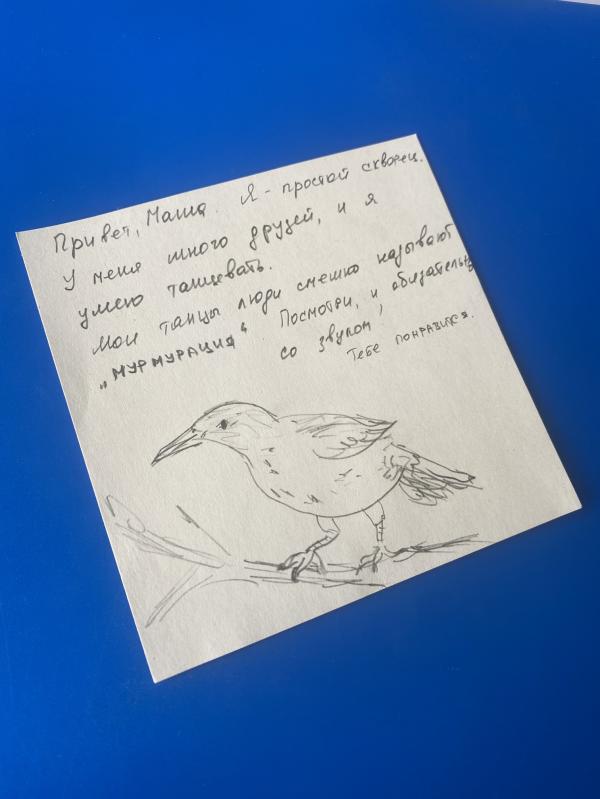 Привет, Маша. Я - простой скворец.
У меня много друзей, и я
умею танцевать.
Мои танцы люди смешно называют
„МУРМУРАЦИЯ“ Посмотри, и обязательно
со звуком,
Тебе понравится.